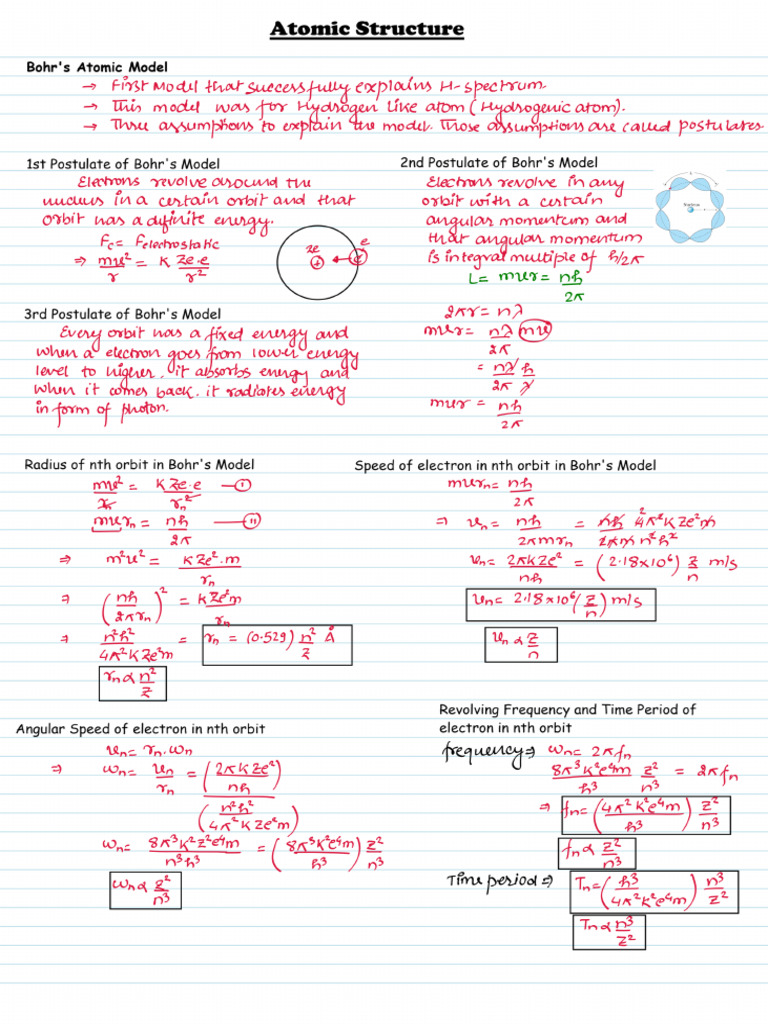 Atomic Structure
Bohr's Atomic Model
→ First Model that successfully explains H-spectrum.
→ This model was for Hydrogen like atom (Hydrogenic atom).
→ Three assumptions to explain the model. Those assumptions are called postulates.
1st Postulate of Bohr's Model
Electrons revolve around the
nucleus in a certain orbit and that
orbit has a definite energy.
Fc = Felectrostatic
⇒ mv²/r = K Ze·e/r²
ze
+
e
2nd Postulate of Bohr's Model
Electrons revolve in any
orbit with a certain
angular momentum and
that angular momentum
is integral multiple of h/2π
L = mvr = nh/2π
2πr = nλ
mvr = nλ/2π mv
= nλ/2π h/λ
mvr = nh/2π
3rd Postulate of Bohr's Model
Every orbit has a fixed energy and
when a electron goes from lower energy
level to higher, it absorbs energy and
when it comes back, it radiates energy
in form of photon.
Radius of nth orbit in Bohr's Model
mv²/rn = K Ze·e/rn² — I
mvrn = nh/2π — II
⇒ m²v² = KZe²·m/rn
⇒ (nh/2πrn)² = KZe²m/rn
⇒ n²h²/4π²KZe²m = rn = (0.529) n²/Z Å
rn ∝ n²/Z
Speed of electron in nth orbit in Bohr's Model
mvrn = nh/2π
⇒ vn = nh/2πmrn = nh 4π²KZe²m/2πm n²h²
vn = 2πKZe²/nh = (2.18×10⁶) Z/n m/s
vn = 2.18×10⁶ (Z/n) m/s
vn ∝ Z/n
Angular Speed of electron in nth orbit
vn = rn·ωn
⇒ ωn = vn/rn = (2πKZe²/nh)/(n²h²/4π²KZe²m)
ωn = 8π³K²Z²e⁴m/n³h³ = (8π³K²e⁴m/h³) Z²/n³
ωn ∝ Z²/n³
Revolving Frequency and Time Period of
electron in nth orbit
frequency ⇒ ωn = 2πfn
8π³K²e⁴m/h³ Z²/n³ = 2πfn
⇒ fn = (4π²K²e⁴m/h³) Z²/n³
fn ∝ Z²/n³
Time period ⇒ Tn = (h³/4π²K²e⁴m) n³/Z²
Tn ∝ n³/Z²